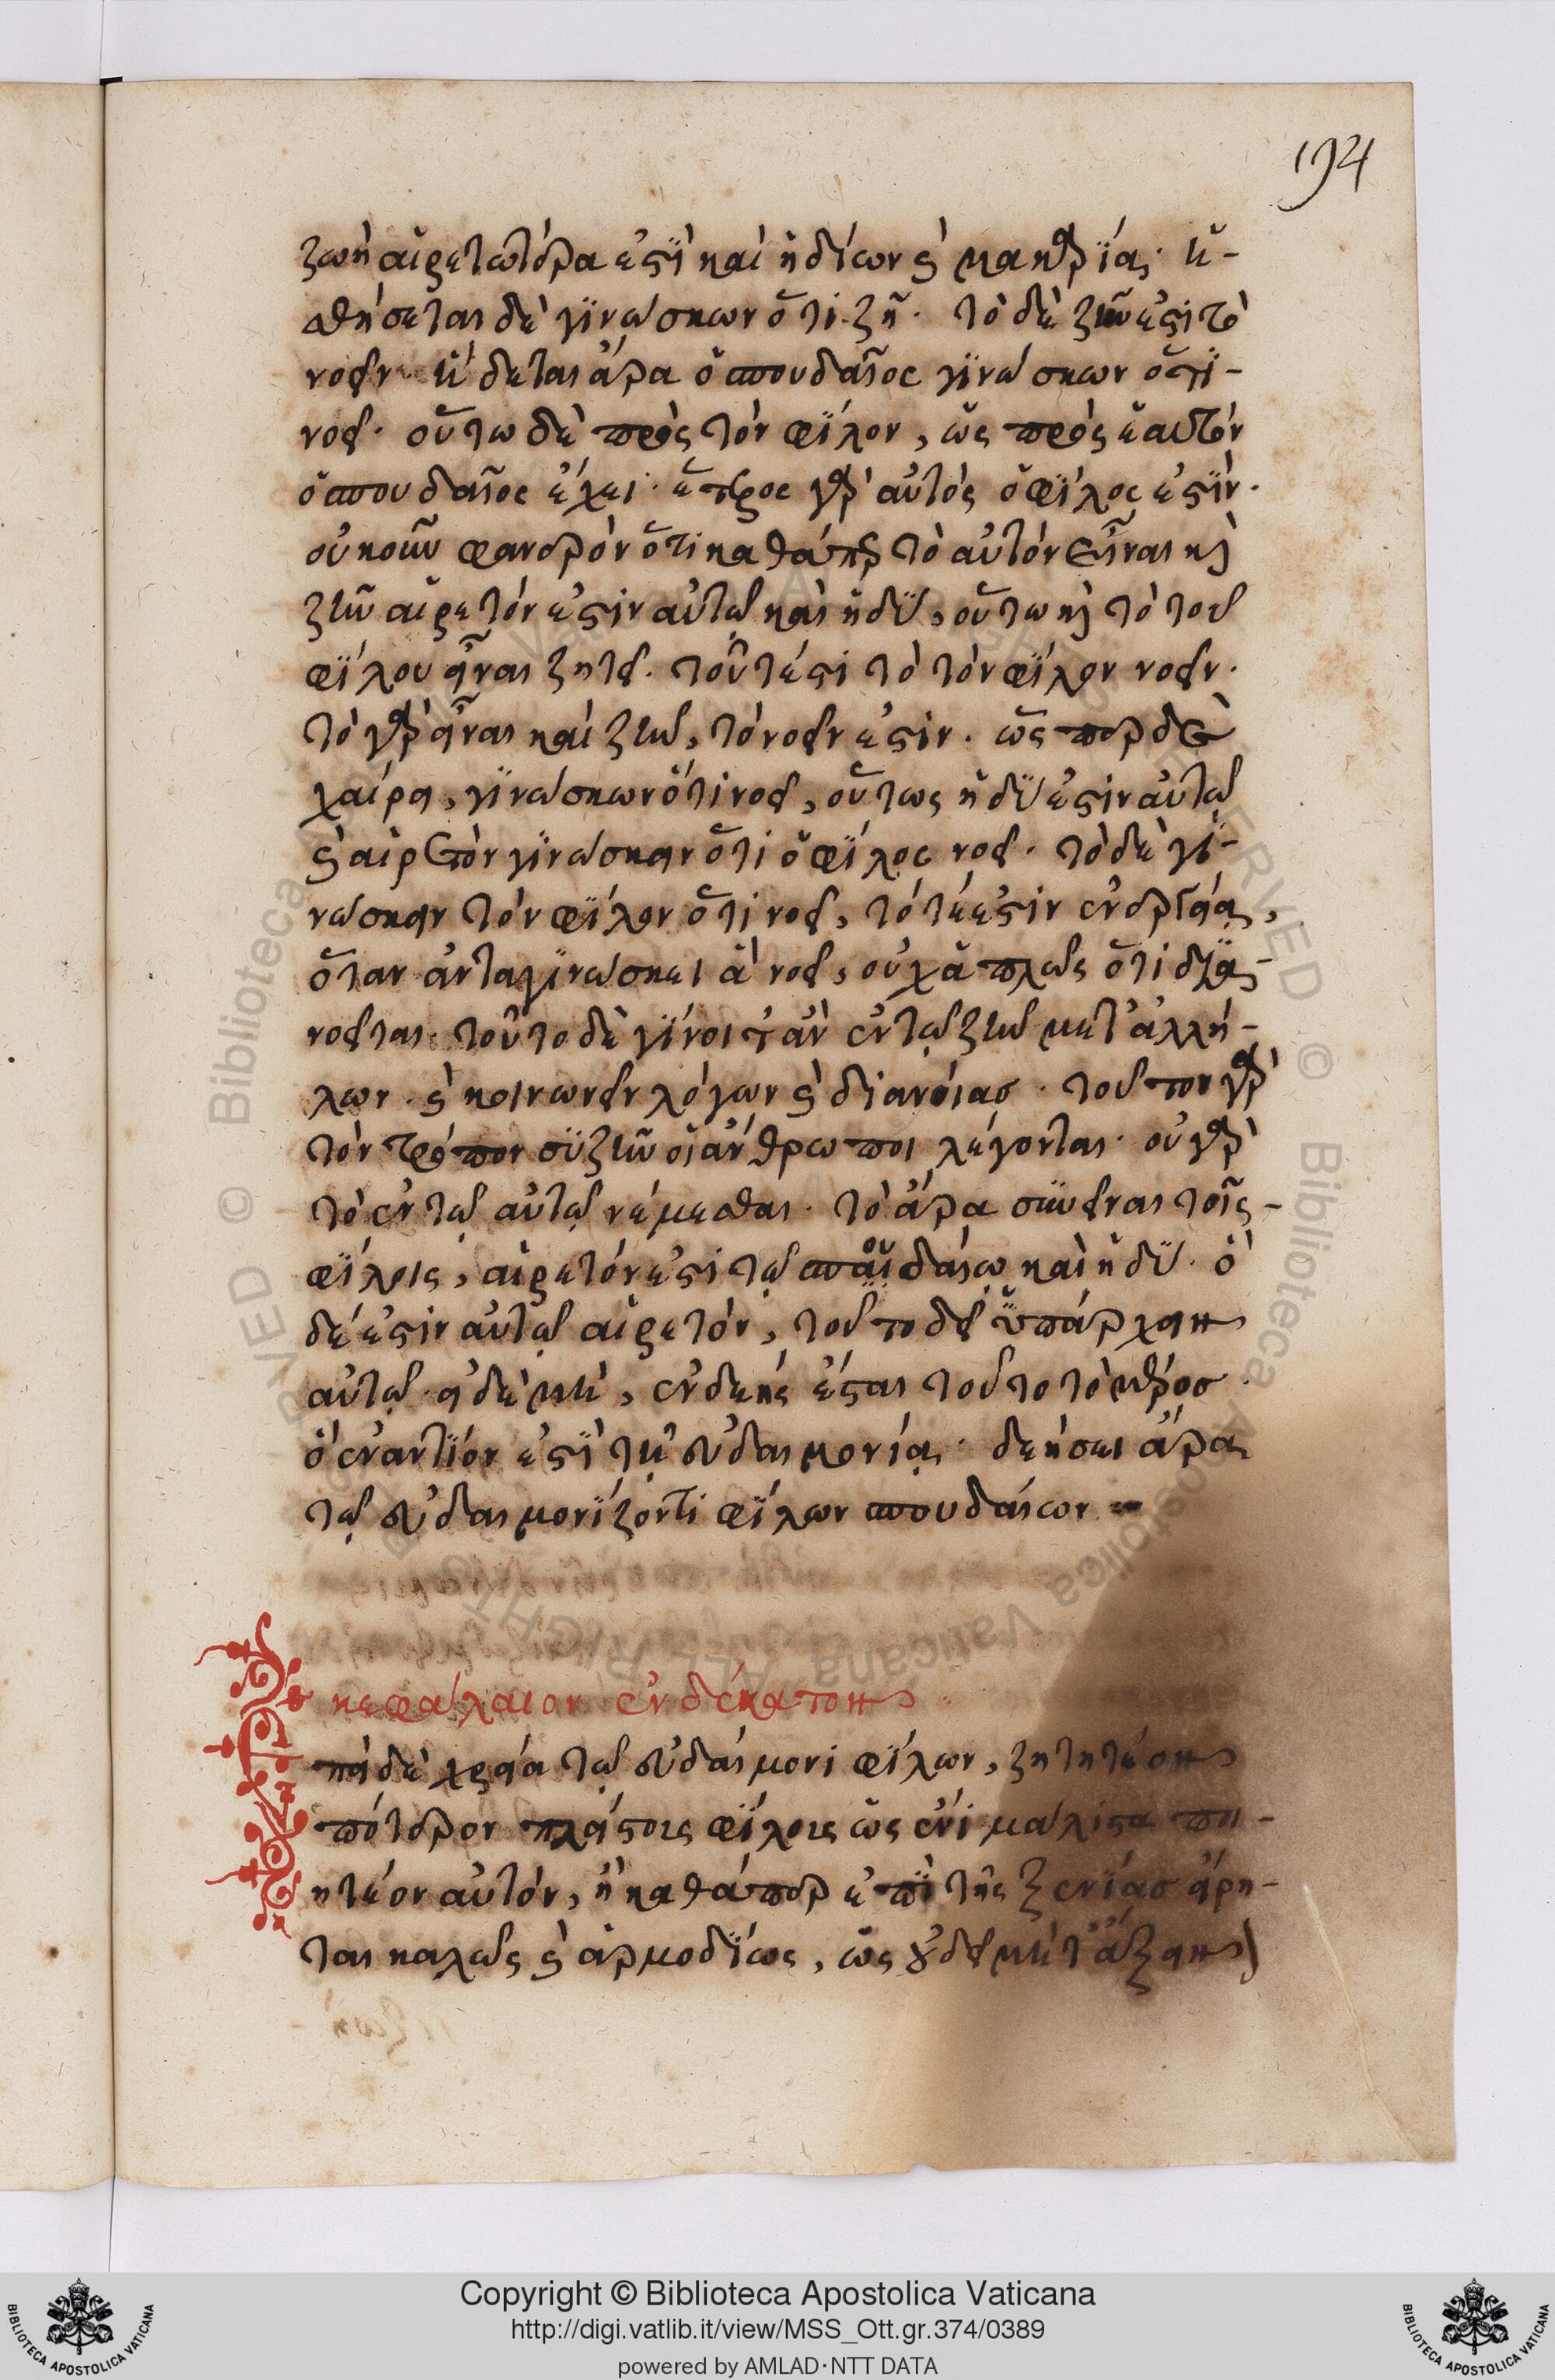 194
ζωὴ αἱρετωτέρα ἐστὶ καὶ ἡδίων καὶ μακαρία· ἡ-
σθήσεται δὲ γινώσκων ὅτι ζῇ· τὸ δὲ ζῆν ἐστι τὸ
νοεῖν· ἥδεται ἄρα ὁ σπουδαῖος γινώσκων ὅτι
νοεῖ· οὕτω δὲ πρὸς τὸν φίλον, ὡς πρὸς ἑαυτόν
ὁ σπουδαῖος ἔχει· ἕτερος γὰρ αὐτὸς ὁ φίλος ἐστίν·
οὐκοῦν φανερὸν ὅτι καθάπερ τὸ αὐτὸν εἶναι καὶ
ζῆν αἱρετόν ἐστιν αὐτῷ καὶ ἡδύ, οὕτω καὶ τὸ τοῦ
φίλου εἶναι ζητεῖ. τοῦτέστι τὸ τὸν φίλον νοεῖν·
τὸ γὰρ εἶναι καὶ ζῆν, τὸ νοεῖν ἐστιν. ὥσπερ δὲ
χαίρει, γινώσκων ὅτι νοεῖ, οὕτως ἡδύ ἐστιν αὐτῷ
καὶ αἱρετὸν γινώσκειν ὅτι ὁ φίλος νοεῖ. τὸ δὲ γι-
νώσκειν τὸν φίλον ὅτι νοεῖ, τότέ ἐστιν ἐνεργείᾳ,
ὅταν ἅντα γινώσκει ἃ νοεῖ, οὐχ ἁπλῶς ὅτι δια-
νοεῖται. τοῦτο δὲ γίνοιτ ἂν ἐν τῷ ζῆν μετ ἀλλή-
λων. καὶ κοινωνεῖν λόγων καὶ διανοίας. τοῦτον γὰρ
τὸν τρόπον συζῆν οἱ ἄνθρωποι λέγονται. οὐ γὰρ
τὸ ἐν τῷ αὐτῷ νέμεσθαι. τὸ ἄρα συνεῖναι τοῖς
φίλοις, αἱρετόν ἐστι τῷ σπουδαίῳ καὶ ἡδύ. ὃ
δέ ἐστιν αὐτῷ αἱρετόν, τοῦτο δεῖ ὑπάρχειν
αὐτῷ. εἰ δὲ μὴ, ἐνδεὴς ἔσται τοῦτο τὸ μέρος.
ὃ ἐναντίον ἐστὶ τῇ εὐδαιμονίᾳ. δεήσει ἄρα
τῷ εὐδαιμονίζοντι φίλων σπουδαίων
κεφάλαιον ἑνδέκατον
πεὶ δὲ χρεία τῷ εὐδαίμονι φίλων, ζητητέον
πότερον πλείστοις φίλοις ὡς ἔνι μάλιστα ποι-
ητέον αὐτόν, ἢ καθάπερ ἐπὶ τῆς ξενίας εἴρη-
ται καλῶς καὶ ἁρμοδίως, ὡς οὐ δεῖ μήτ ἄξειν
Copyright © Biblioteca Apostolica Vaticana
http://digi.vatlib.it/view/MSS_Ott.gr.374/0389
powered by AMLAD·NTT DATA